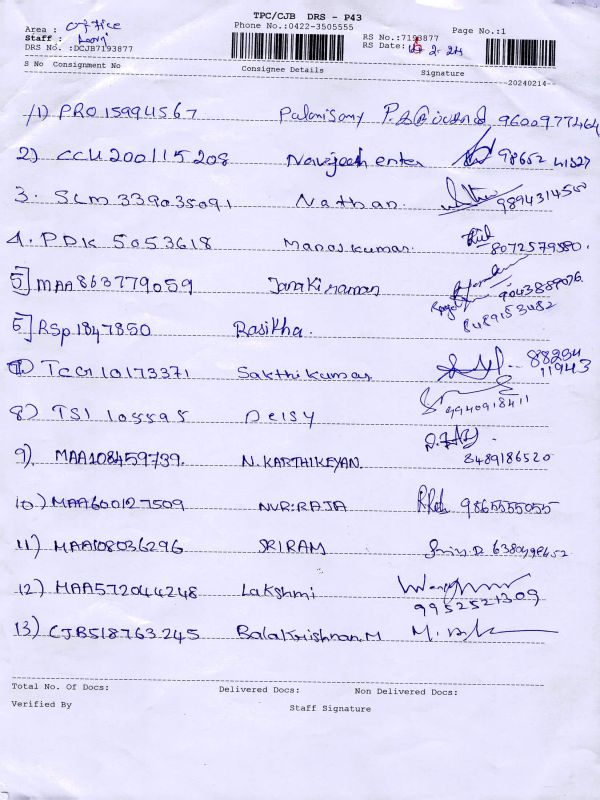 TPC/CJB DRS - P43
Area : office Phone No.:0422-3505555 Page No.:1
Staff : RS No.:7193877
DRS No. :DCJB7193877 RS Date: 2.24
S No Consignment No Consignee Details Signature
20240214
1) PRO15994567 Palanisamy 9600977464
2) CCU200115208 Navjeeth enter 98652 41327
3. SLM339035091 Nathan. 9894314500
4. PDK 5053618 Manoj kumar. 8072579580.
5] MAA863779059 Janakiraman 9043889076.
8489153482
6] RSP1847850 Rasikha.
7. TCG10173371 Sakthikumar 88254
11943
8) TSI 105595 Deisy 9940918411
9). MAA108459739. N.KARTHIKEYAN. 8489186520
10) MAA600127509 NVR:RAJA 9865555055
11) MAA108036296 SRIRAM
12) MAA572044248 Lakshmi
9952521309
13) CJB518763245 Balakrishnan.M
Total No. Of Docs: Delivered Docs: Non Delivered Docs:
Verified By Staff Signature